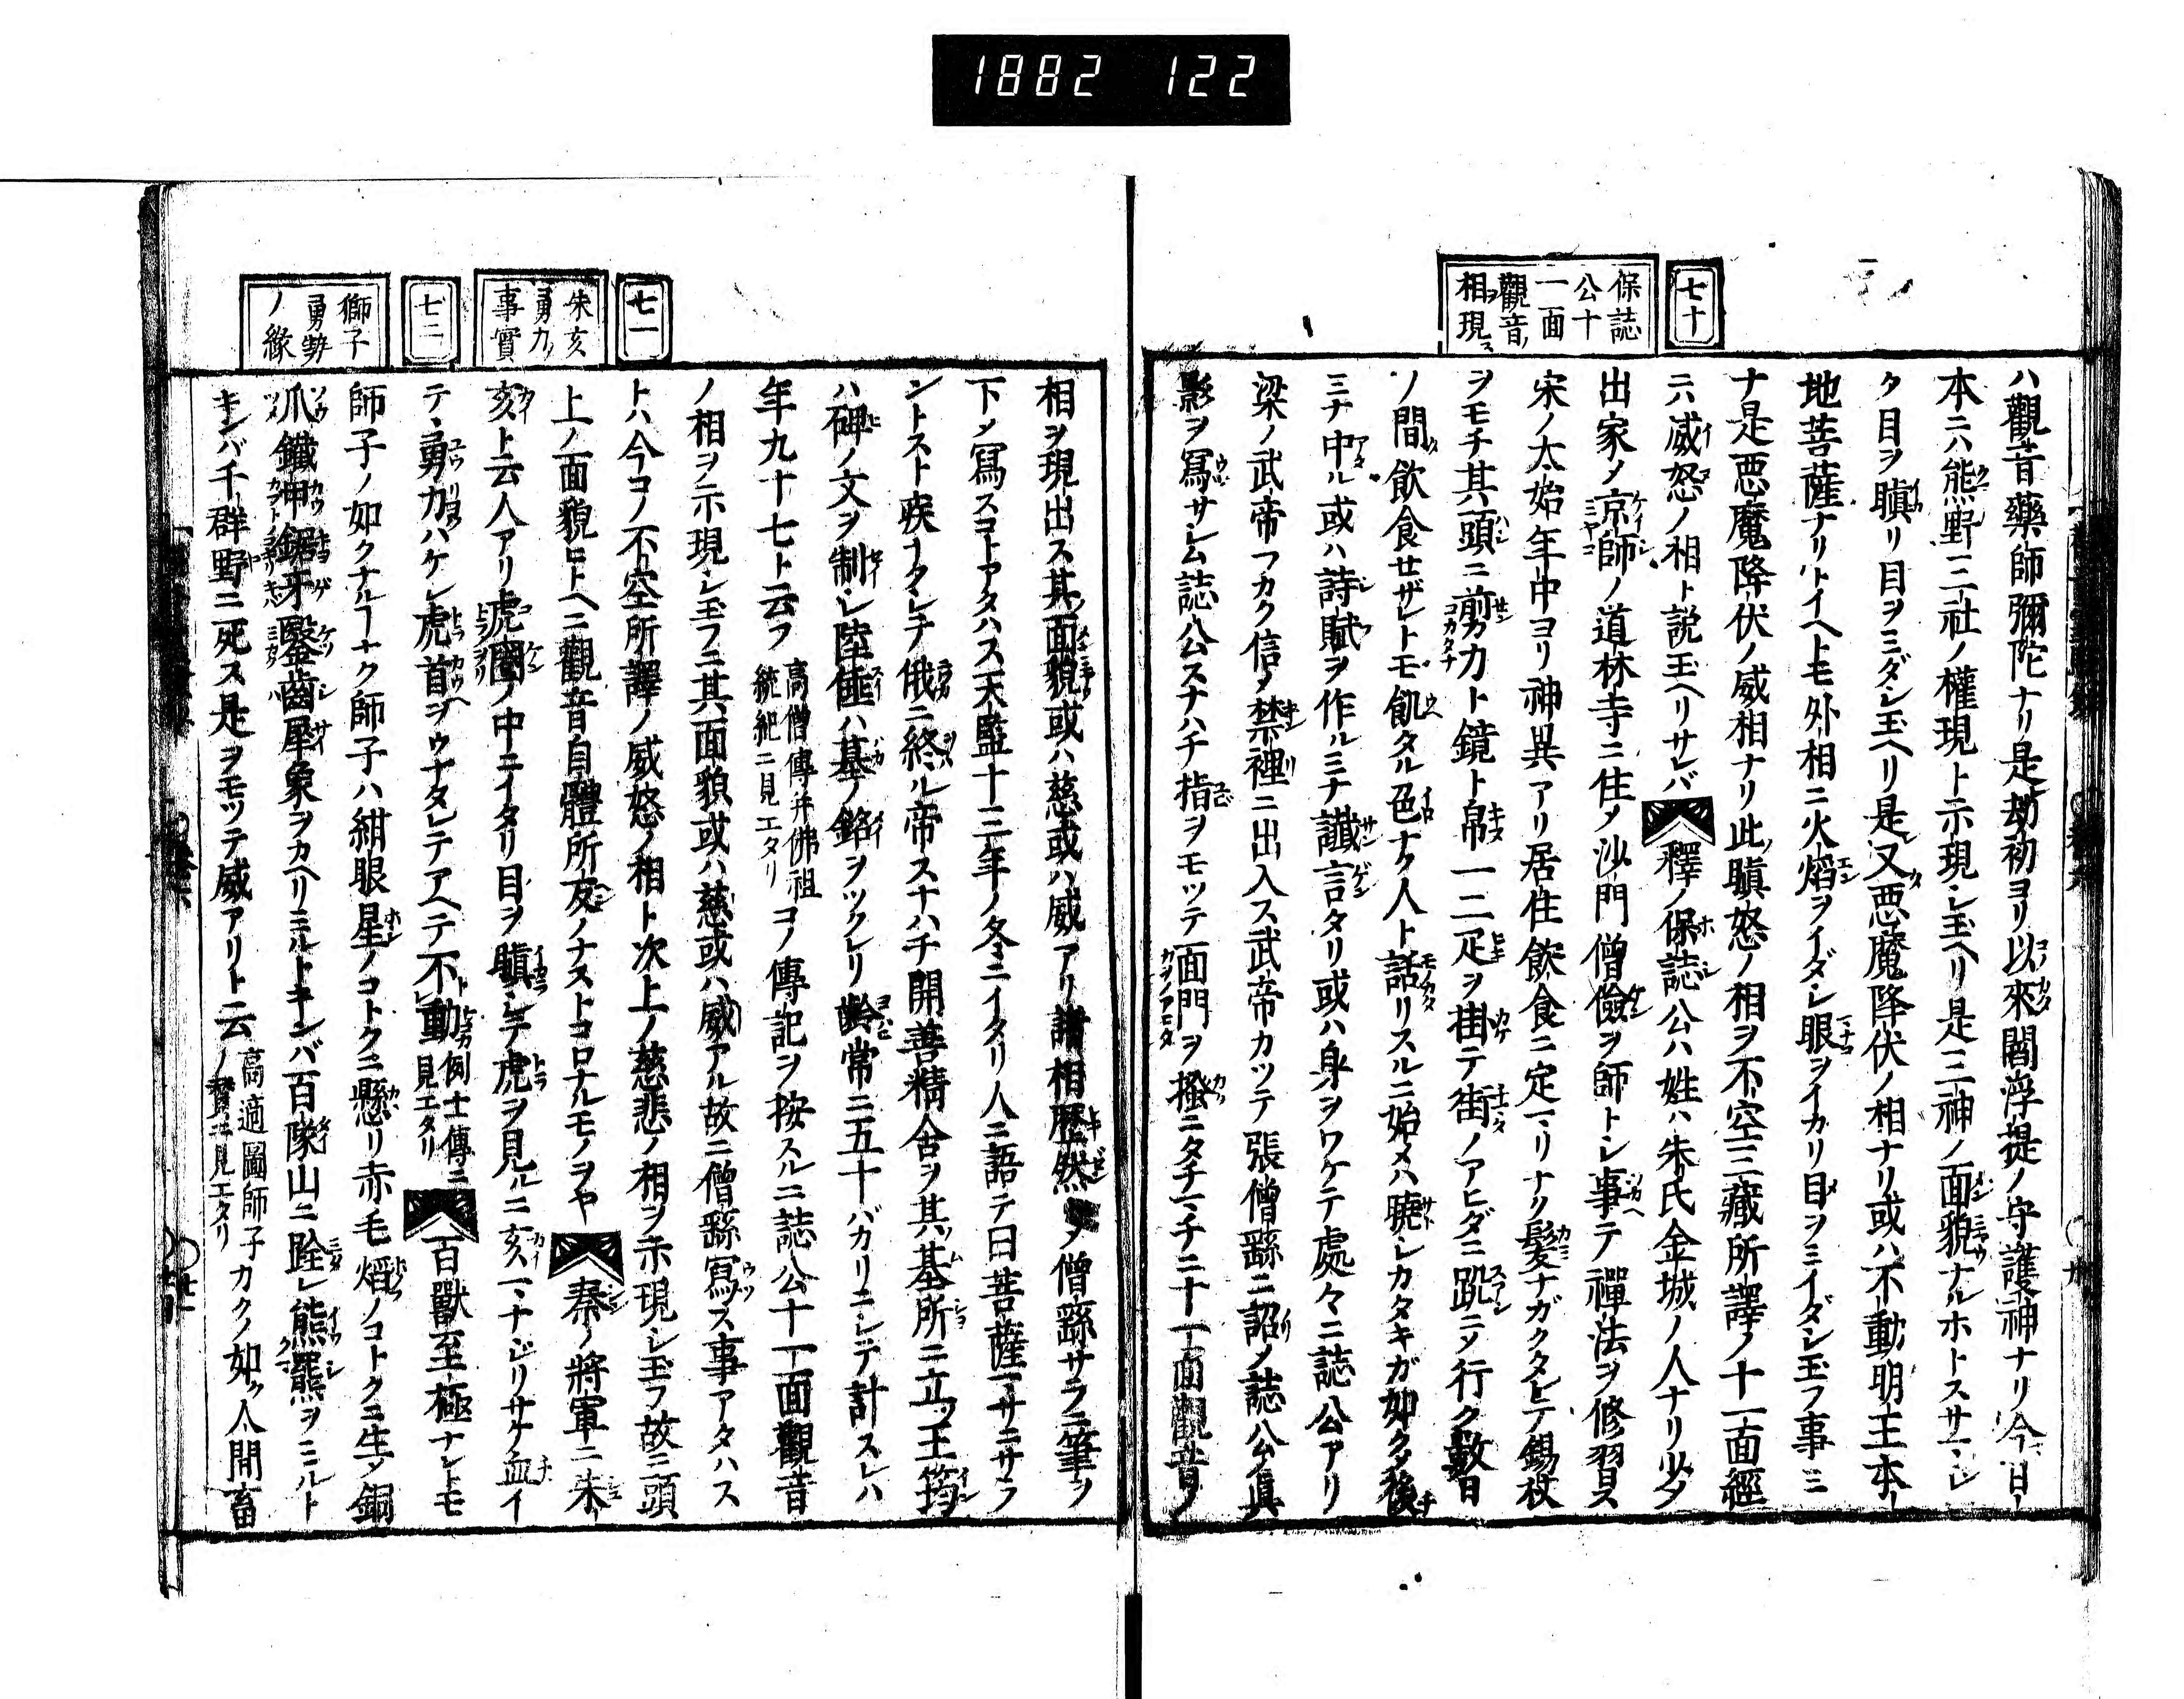 1882 122
七十
保誌
公十
一面
觀音ノ
相ヲ現ス
ハ觀音藥師彌陀ナリ是劫初ヨリ以來閻浮提ノ守護神ナリ今日
本ニハ熊野三社ノ權現ト示現シ玉ヘリ是三神ノ面貌ナルホトスサマシ
ク目ヲ瞋リ目ヲミダシ玉ヘリ是又悪魔降伏ノ相ナリ或ハ不動明王本
地菩薩ナリトイヘトモ外相ニ火焰ヲイダシ眼ヲイカリ目ヲミイダシ玉フ事ミ
ナ是悪魔降伏ノ威相ナリ此瞋怒ノ相ヲ不空三藏所譯ノ十一面經
ニハ威怒ノ相ト説玉ヘリサレバ釋ノ保誌公ハ姓ハ朱氏金城ノ人ナリ
出家メ京師ノ道林寺ニ住メ沙門僧儉ヲ師トシ事テ禪法ヲ修習ス
宋ノ太始年中ヨリ神異アリ居住飲食ニ定マリナク髮ナガクタレテ錫杖
ヲモチ其頭ニ剪刀ト鏡ト帛一二疋ヲ掛テ街ノアヒダニ跣ニメ行ク數日
ノ間飲食セザレトモ飢タル色ナク人ト話リスルニ始メハ曉シカタキガ如クメ後チ
ミナ中ル或ハ詩賦ヲ作ルミナ讖言タリ或ハ身ヲワケテ處々ニ誌公アリ
梁ノ武帝フカク信メ禁裡ニ出入ス武帝カツテ張僧繇ニ詔メ誌公ノ眞
影ヲ冩サシム誌公スナハチ指ヲモツテ面門ヲ搔ニタチマチニ十一面觀音ノ
七一
朱亥
勇力ノ
事實
七二
獅子
勇勢
ノ緣
相ヲ現出ス其面貌或ハ慈或ハ威アリ諸相歴然メ僧繇サラニ筆ヲ
下メ冩スコトアタハス天監十三年ノ冬ニイタリ人ニ語テ曰菩薩マサニサラ
ントスト疾ナクシテ俄ニ終ル帝スナハチ開善精舍ヲ其墓所ニ立ツ王筠
ハ碑ノ文ヲ制シ陸倕ハ墓ノ銘ヲツクレリ齡常ニ五十バカリニシテ計スレハ
年九十七ト云フ高僧傳幷佛祖統紀ニ見エタリコノ傳記ヲ按スルニ誌公十一面觀音
ノ相ヲ示現シ玉フニ其面貌或ハ慈或ハ威アル故ニ僧繇冩ス事アタハス
トハ今コノ不空所譯ノ威怒ノ相ト次上ノ慈悲ノ相ヲ示現シ玉フ故ニ頭
上ノ面貌ヒトヘニ觀音自體所反ノナストコロナルモノヲヤ秦ノ將軍ニ朱
亥ト云人アリ虎圈ノ中ニイタリ目ヲ瞋シテ虎ヲ見ルニ亥マナジリサケ血イ
テヽ勇力ハケシ虎首ヲウナタレテアヘテ不動例士傳ニ見エタリ百獸至極ナレトモ
師子ノ如クナルナク師子ハ紺眼星ノコトクニ懸リ赤毛焰ノコトクニ生メ銅
爪鐵甲鋸牙鑿齒犀象ヲカヘリミルトキンバ百隊山ニ踪レ熊羆ヲミルト
キンバ千群野ニ死ス是ヲモツテ威アリト云ノ高適圖師子贊ニ見エタリカクノ如ク人間畜